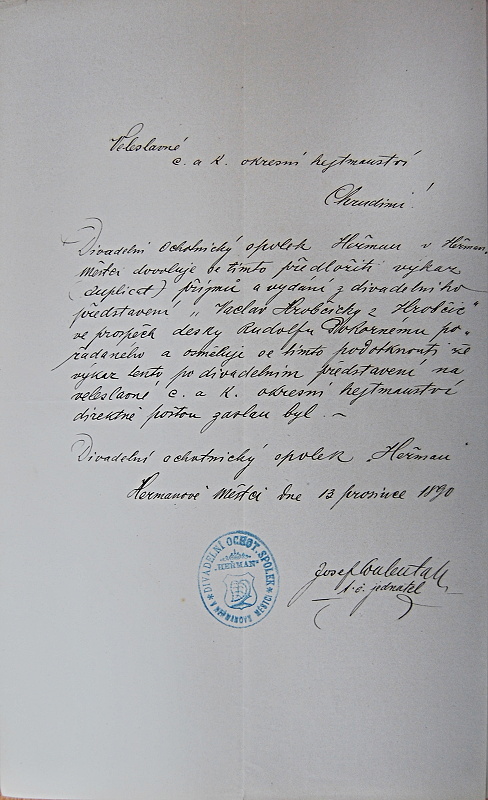 Veleslavné
c. a k. okresní hejtmanství
Chrudimi!
Divadelní ochotnický spolek Heřman v Heřman.
Městci dovoluje se tímto předložiti výkaz
(duplicat) příjmů a vydání z divadelního
představení „Vaclav Hrobčický z Hrobčic"
ve prospěch desky Rudolfu Pokornemu po„
řádaného a osměluje se tímto podotknouti že
výkaz tento po divadelním představení na
veleslavné c. a k. okresní hejtmanství
direktně poštou zaslán byl. –
Divadelní ochotnický spolek „Heřman
Heřmanově Městci dne 13 prosince 1890
DIVADELNÍ OCHOT. SPOLEK
„HEŘMAN"
V HEŘMANOVĚ MĚSTCI
Josef
t. č. jednatel